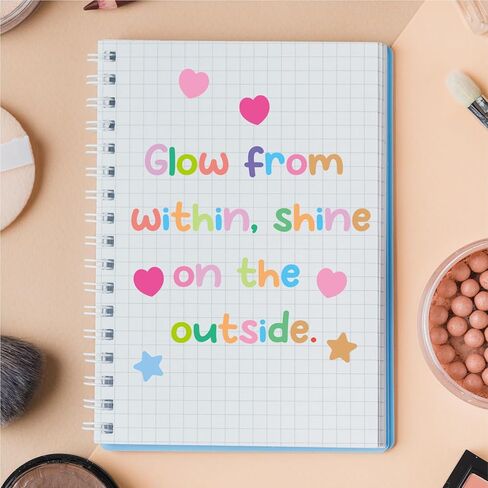 Glow from
within, shine
on the
outside.